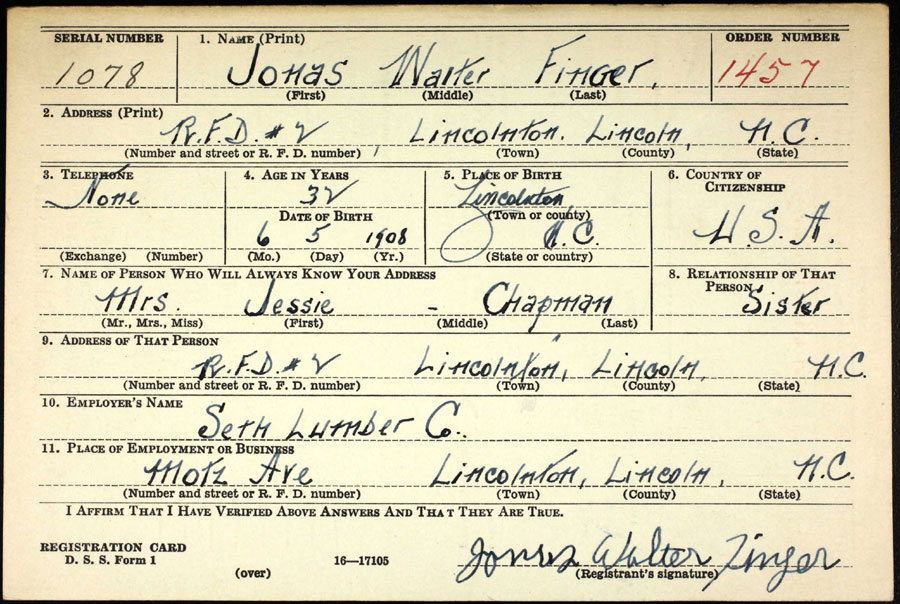 SERIAL NUMBER 1. NAME (Print) ORDER NUMBER
1078 Jonas Walter Finger, 1457
(First) (Middle) (Last)
2. ADDRESS (Print)
R.F.D. #2, Lincolnton. Lincoln, N.C.
(Number and street or R. F. D. number) (Town) (County) (State)
3. TELEPHONE 4. AGE IN YEARS 5. PLACE OF BIRTH 6. COUNTRY OF CITIZENSHIP
None 32 Lincolnton
DATE OF BIRTH (Town or county)
6 5 1908 N.C. U.S.A.
(Exchange) (Number) (Mo.) (Day) (Yr.) (State or country)
7. NAME OF PERSON WHO WILL ALWAYS KNOW YOUR ADDRESS 8. RELATIONSHIP OF THAT PERSON
Mrs. Jessie - Chapman Sister
(Mr., Mrs., Miss) (First) (Middle) (Last)
9. ADDRESS OF THAT PERSON
R.F.D. #2 Lincolnton, Lincoln, N.C.
(Number and street or R. F. D. number) (Town) (County) (State)
10. EMPLOYER'S NAME
Seth Lumber Co.
11. PLACE OF EMPLOYMENT OR BUSINESS
Motz Ave Lincolnton, Lincoln, N.C.
(Number and street or R. F. D. number) (Town) (County) (State)
I AFFIRM THAT I HAVE VERIFIED ABOVE ANSWERS AND THAT THEY ARE TRUE.
REGISTRATION CARD
D. S. S. Form 1 16—17105 Jonas Walter Finger
(over) (Registrant's signature)